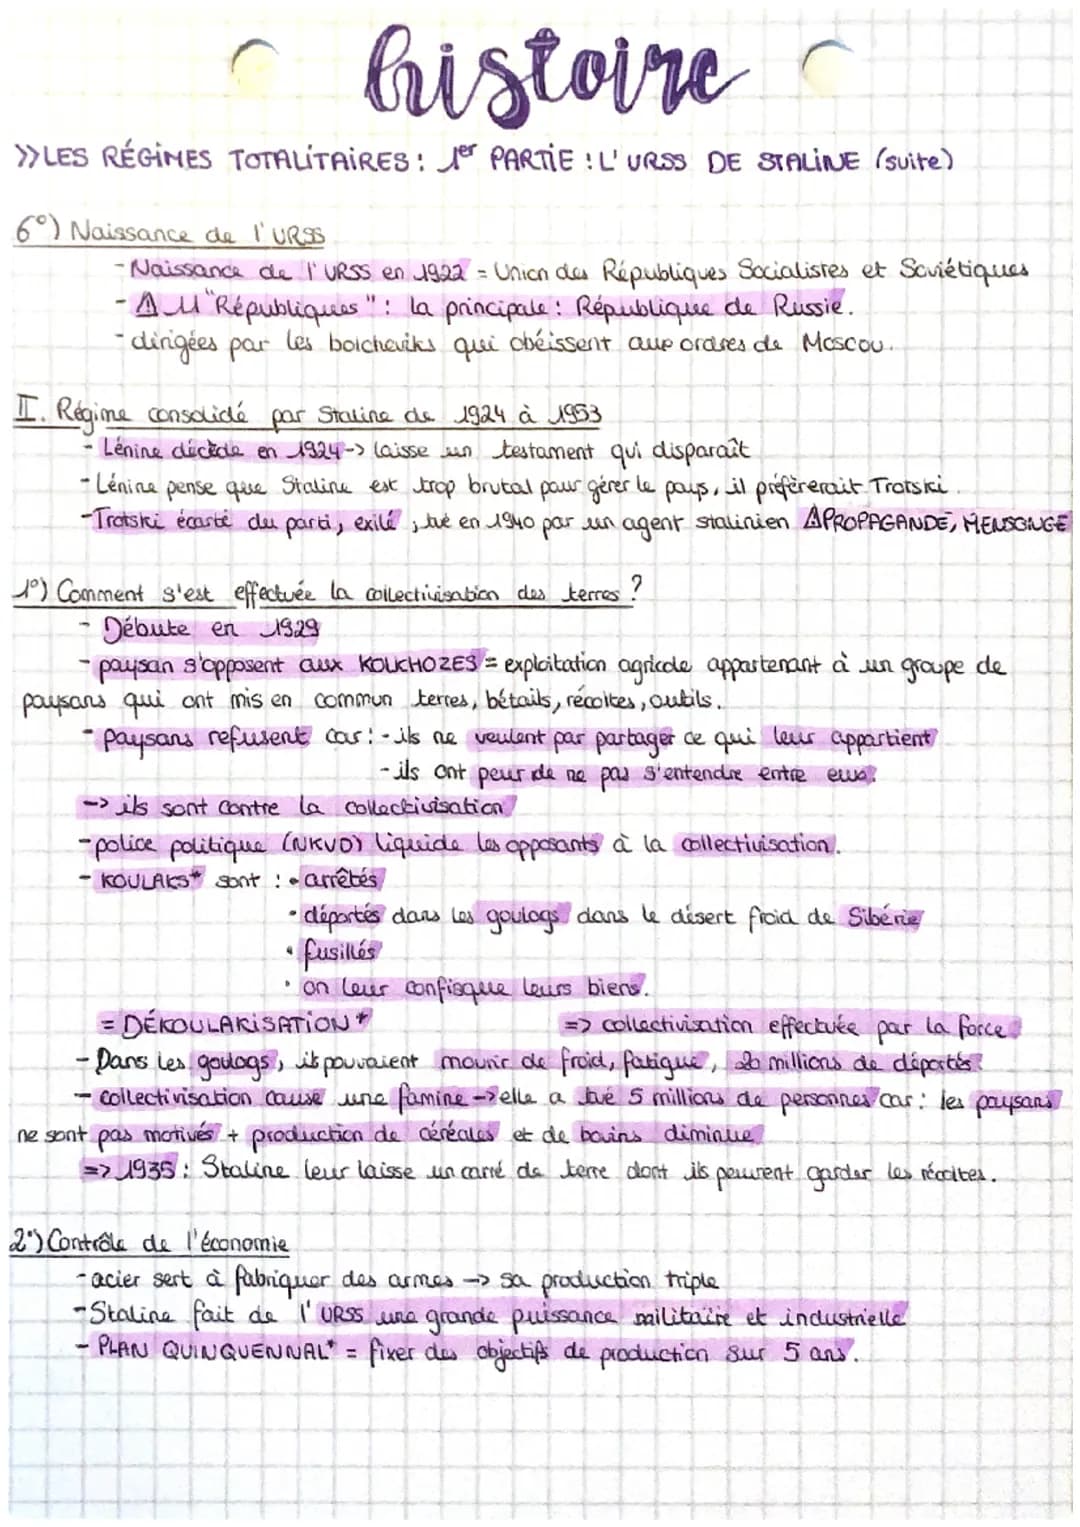 histoire
>> LES RÉGIMES TOTALITAIRES : 1er PARTIE : L'URSS DE STALINE (suite)
6°) Naissance de l'URSS
- Naissance de l'URSS en 1922 = Union des Républiques Socialistes et Soviétiques
- ⚠ 11 "Républiques" : la principale : République de Russie.
- dirigées par les bolcheviks qui obéissent aux ordres de Moscou.
II. Régime consolidé par Staline de 1924 à 1953
- Lénine décède en 1924 -> laisse un testament qui disparaît
- Lénine pense que Staline est trop brutal pour gérer le pays, il préfèrerait Trotski.
- Trotski écarté du parti, exilé, tué en 1940 par un agent stalinien ⚠PROPAGANDE, MENSONGE
1°) Comment s'est effectuée la collectivisation des terres ?
- Débute en 1929
- paysan s'opposent aux KOLKHOZES = exploitation agricole appartenant à un groupe de
paysans qui ont mis en commun terres, bétails, récoltes, outils.
- paysans refusent car : - ils ne veulent par partager ce qui leur appartient
- ils ont peur de ne pas s'entendre entre eux.
-> ils sont contre la collectivisation
- police politique (NKVD) liquide les opposants à la collectivisation.
- KOULAKS* sont : • arrêtés
• déportés dans les goulags dans le désert froid de Sibérie
• fusillés
• on leur confisque leurs biens.
= DÉKOULAKISATION * => collectivisation effectuée par la force
- Dans les goulags, ils pouvaient mourir de froid, fatigue, 20 millions de déportés.
- collectivisation cause une famine -> elle a tué 5 millions de personnes car : les paysans
ne sont pas motivés + production de céréales et de bovins diminue
=> 1935 : Staline leur laisse un carré de terre dont ils peuvent garder les récoltes.
2°) Contrôle de l'économie
- acier sert à fabriquer des armes -> sa production triple
- Staline fait de l'URSS une grande puissance militaire et industrielle
- PLAN QUINQUENNAL* = fixer des objectifs de production sur 5 ans.